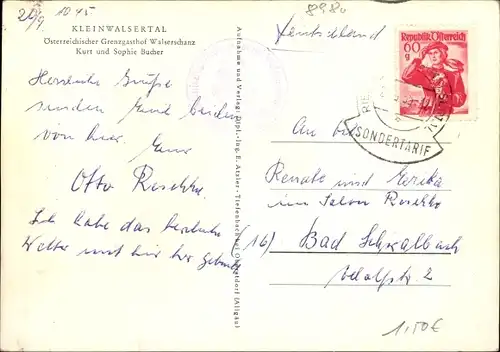 20/9 1045
8980
KLEINWALSERTAL
Österreichischer Grenzgasthof Walserschanz
Kurt und Sophie Bucher
Herzliche Grüße
senden Euch beiden
von hier Euer
Otto Reschke.
Ich habe das herrliche
Wetter mit hier her gebracht
Aufnahme und Verlag: Dipl.-Ing. E. Atzler - Tiefenbach bei Oberstdorf (Allgäu)
Deutschland
Republik Österreich
60
g
RIE
SONDERTARIF
An
Renate und Marika
im Salon Reschke
(16) Bad Schwalbach
Adolfstr. 2
1,50€